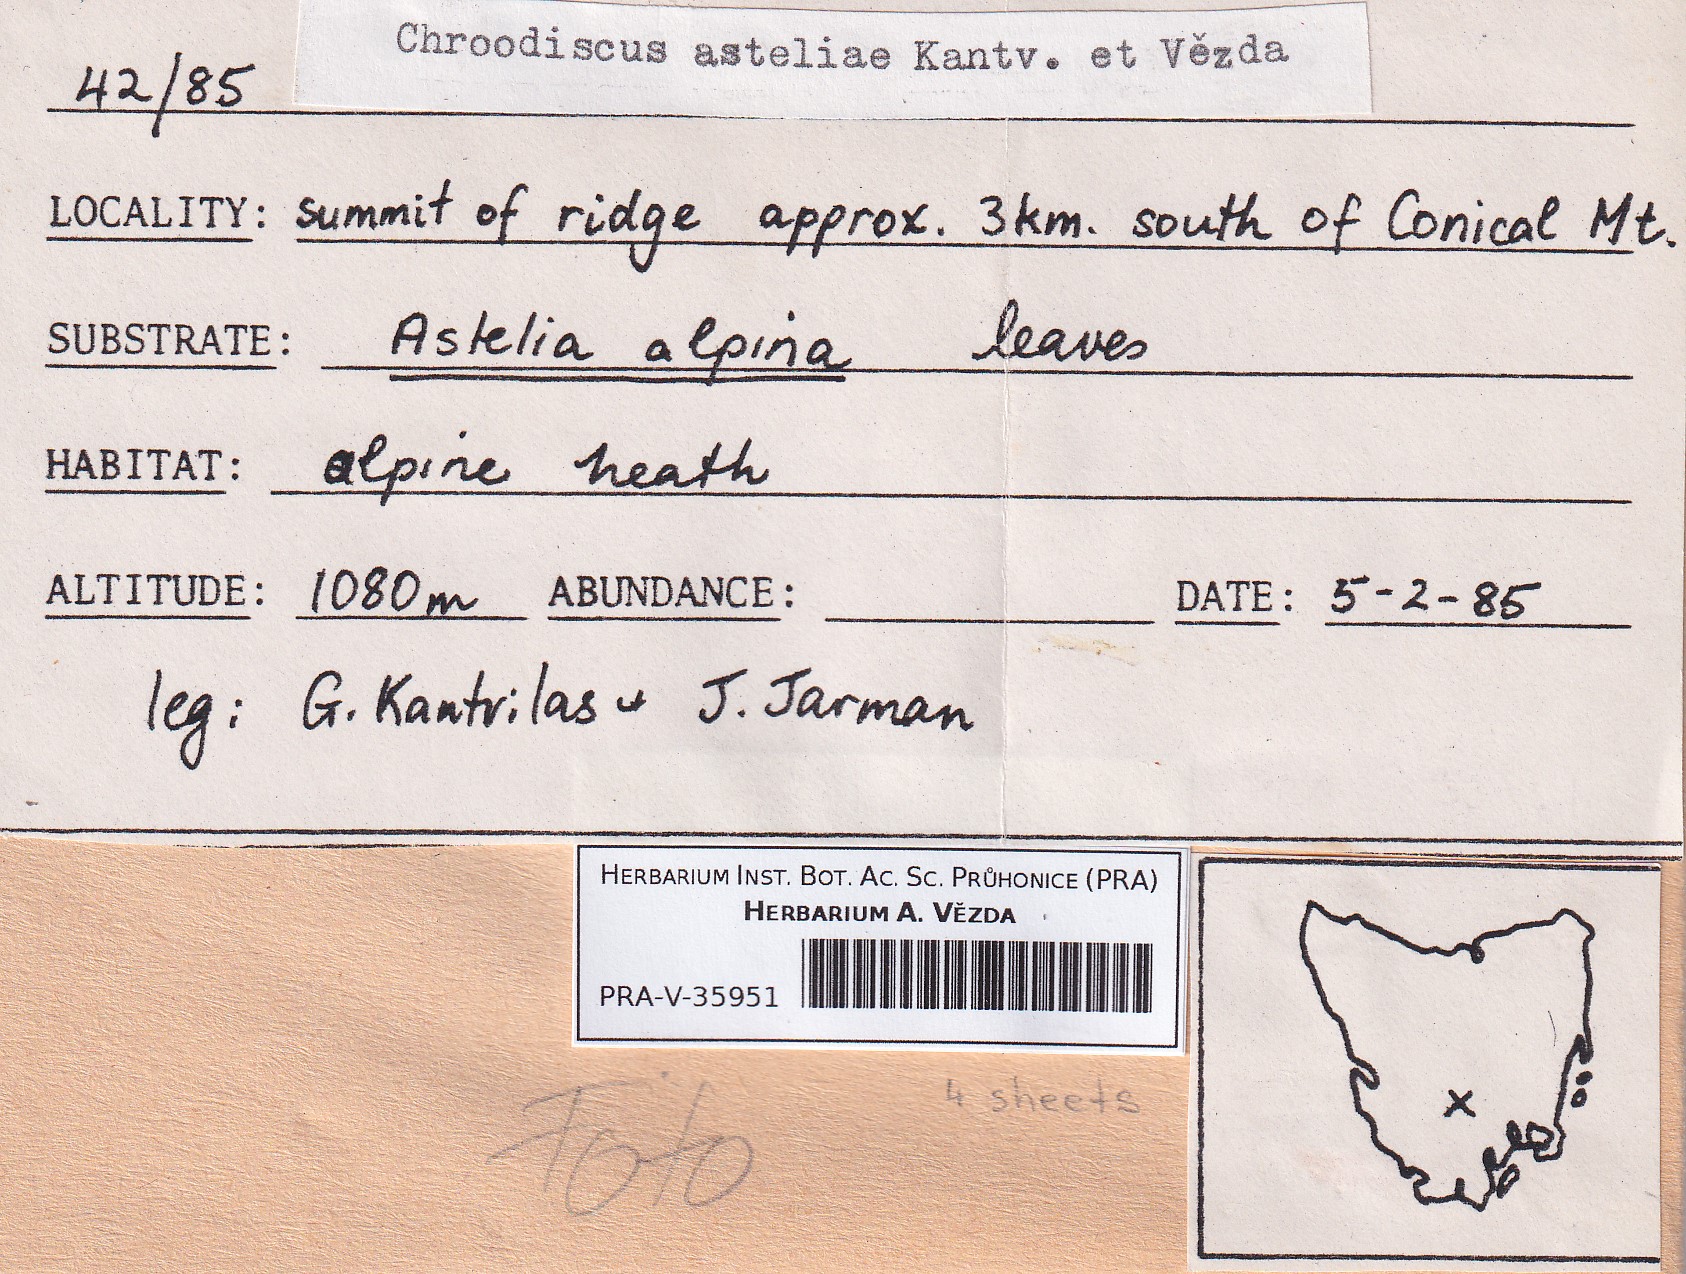 Chroodiscus asteliae Kantv. et Vězda
42/85
LOCALITY: summit of ridge approx. 3km. south of Conical Mt.
SUBSTRATE: Astelia alpina leaves
HABITAT: alpine heath
ALTITUDE: 1080m ABUNDANCE: DATE: 5-2-85
leg: G. Kantvilas + J. Jarman
HERBARIUM INST. BOT. AC. SC. PRŮHONICE (PRA)
HERBARIUM A. VĚZDA
PRA-V-35951
4 sheets
Foto
x